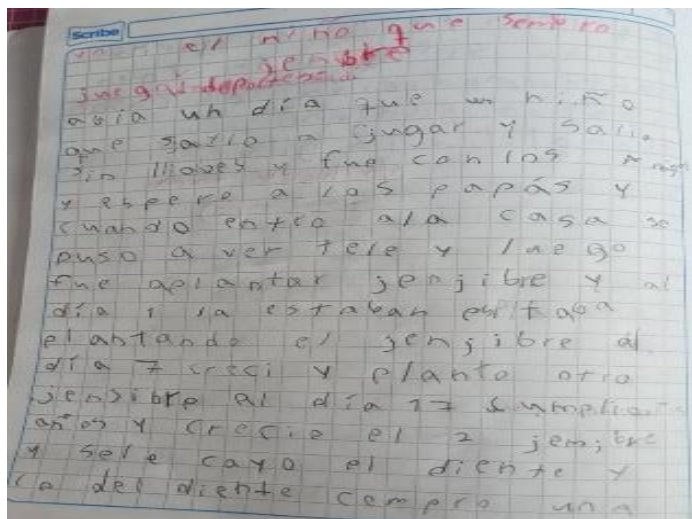 Scribe
el niño que sembro
jenjibre
juega
abia un día que un niño
que salio a jugar y salio
sin llaves y fue con los
y espero a los papás y
cuando entro ala casa se
puso a ver tele y luego
fue aplantar jenjibre y al
día 1 ia estaban
plantando el jenjibre al
día 7 creci y planto otro
jensibre al día 17 kumplio
años y crecio el 2 jemjibre
y sele cayo el diente y
lo del diente compro una